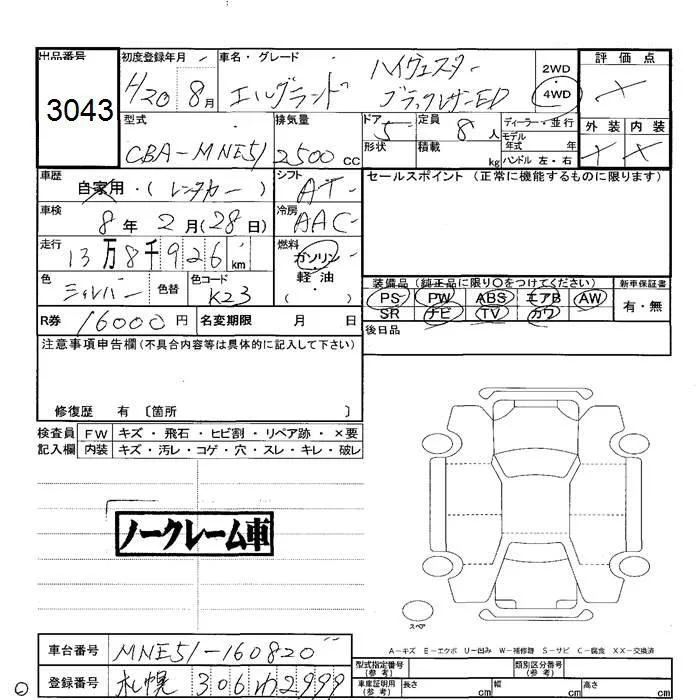 出品番号 初度登録年月 車名・グレード 評価点
3043 H20 8月 エルグランド ハイウェスター 2WD
ブラックレザーED 4WD ×
型式 排気量 ドア 定員 ディーラー・並行 外装 内装
CBA-MNE51 2500cc 5 8人 モデル年式 年 × ×
形状 積載 kg ハンドル 左・右
車歴 シフト セールスポイント(正常に機能するものに限ります)
自家用・(レンタカー) AT
車検 冷房
8年2月(28日) AAC
走行 燃料
13万8千926km ガソリン
軽油
色 色替 色コード ( ・ ) 装備品(純正品に限り○をつけてください) 新車保証書
シルバー K23 PS PW ABS エアB AW 有・無
R券 16000円 名変期限 月 日 SR ナビ TV カワ
注意事項申告欄(不具合内容等は具体的に記入して下さい) 後日品
修復歴 有 〔箇所 〕
検査員 FW キズ・飛石・ヒビ割・リペア跡・×要
記入欄 内装 キズ・汚レ・コゲ・穴・スレ・キレ・破レ
ノークレーム車
スペア
A-キズ E-エクボ U-凹み W-補修跡 S-サビ C-腐食 XX-交換済
車台番号 MNE51-160820
型式指定番号(参考) 類別区分番号(参考)
登録番号 札幌 306 わ 2999
車庫証明用(参考) 長さ cm 幅 cm 高さ cm